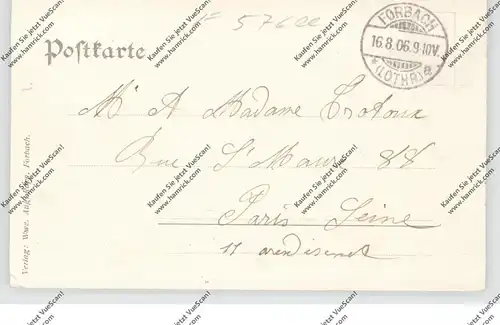 57600
Postkarte
FORBACH
16.8.06.9-10V.
*(LOTHR)*
Mr A Madame
Rue St Maur 88
Paris Seine
11 arrondisement
Verlag: Wwe. Forbach.
Kaufen Sie jetzt VueScan!
www.hamrick.com